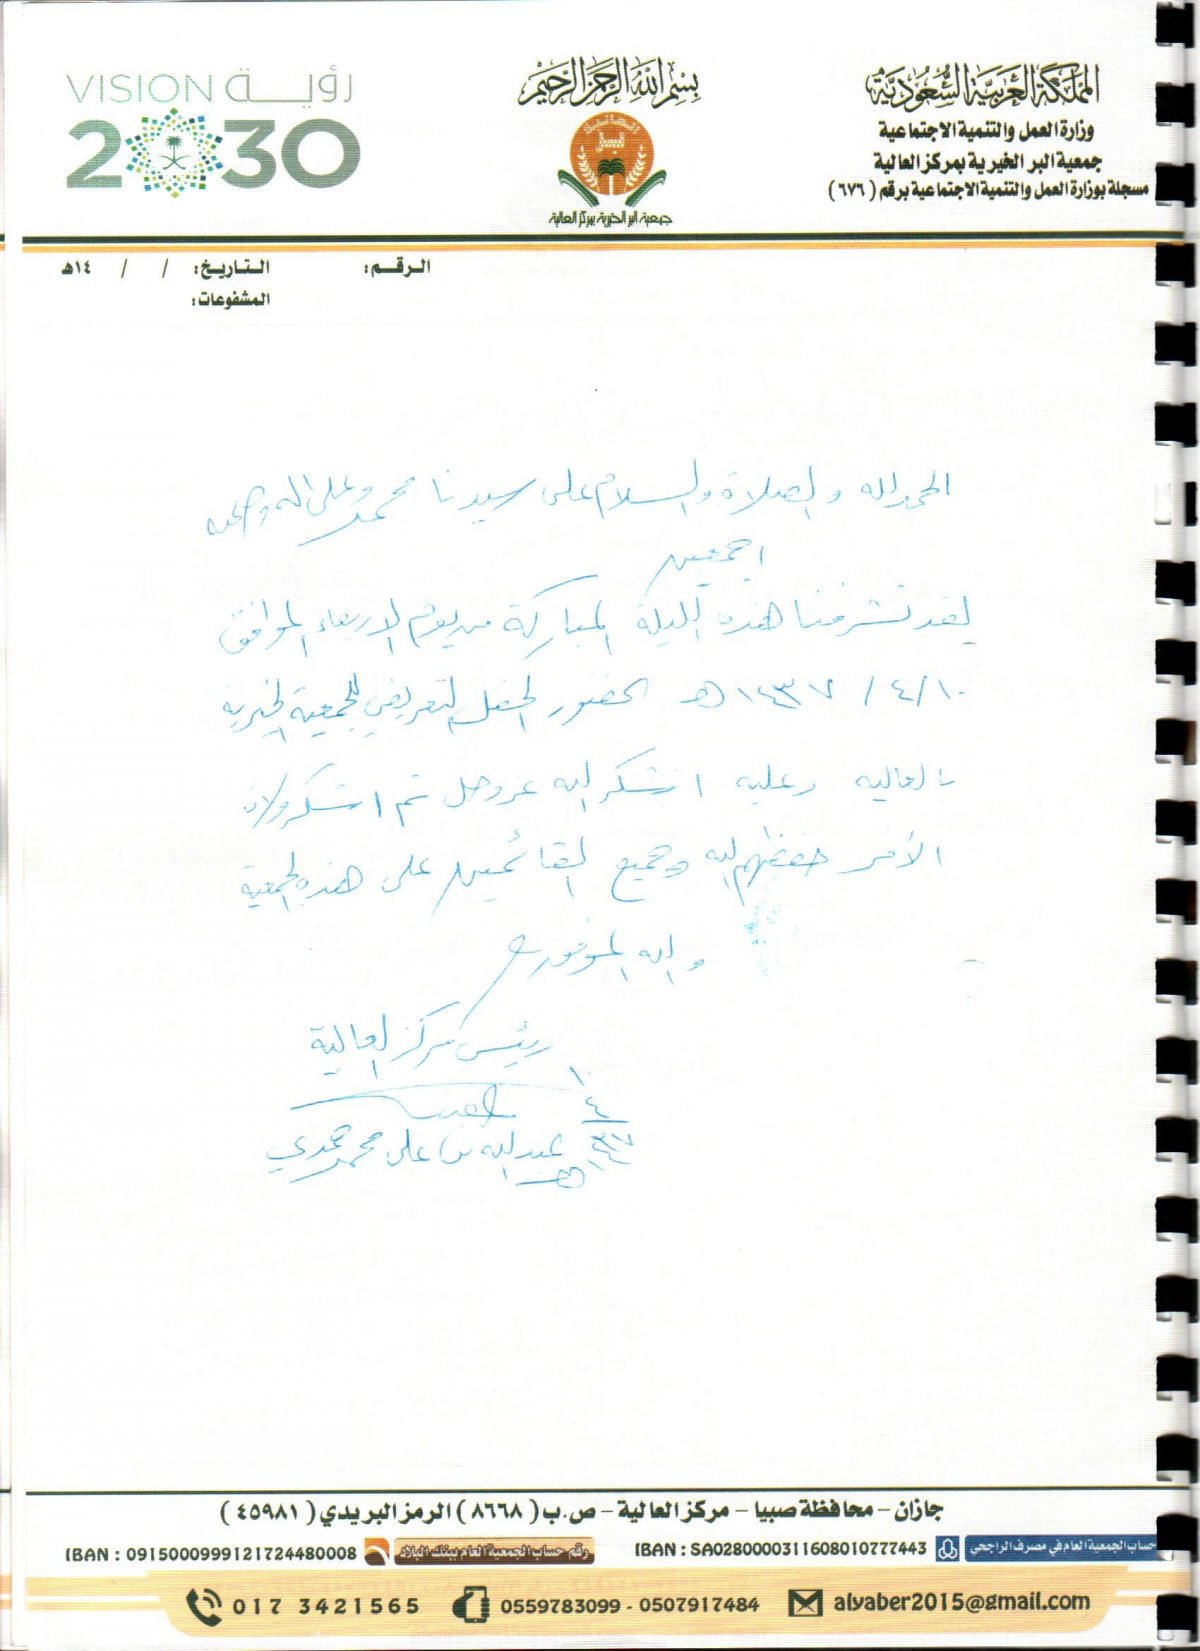 VISION رؤيـــة
2030
بسم الله الرحمن الرحيم
العالية
البر
جمعية البر الخيرية بمركز العالية
المملكة العربية السعودية
وزارة العمل والتنمية الاجتماعية
جمعية البر الخيرية بمركز العالية
مسجلة بوزارة العمل والتنمية الاجتماعية برقم ( ٦٧٦ )
الرقم:
التاريخ: / / ١٤هـ
المشفوعات:
الحمد لله والصلاة والسلام على سيدنا محمد وعلى اله وصحبه
اجمعين
لقد تشرفنا هذه الليلة المباركة من يوم الاربعاء الموافق
١٠/٤/١٤٣٧هـ لحضور الحفل التعريفي للجمعية الخيرية
بالعالية وعليه اشكر الله عز وجل ثم اشكر ولاة
الأمر حفظهم الله وجميع القائمين على هذه الجمعية
والله الموفق
رئيس مركز العالية
١٠
٤
١٤٣٧
هـ
عبدالله بن علي محمد حمدي
جازان - محافظة صبيا - مركز العالية - ص.ب ( ٨٦٦٨ ) الرمز البريدي ( ٤٥٩٨١ )
حساب الجمعية العام في مصرف الراجحي IBAN : SA0280000311608010777443
رقم حساب الجمعية العام ببنك البلاد IBAN : 0915000999121724480008
017 3421565
0559783099 - 0507917484
alyaber2015@gmail.com